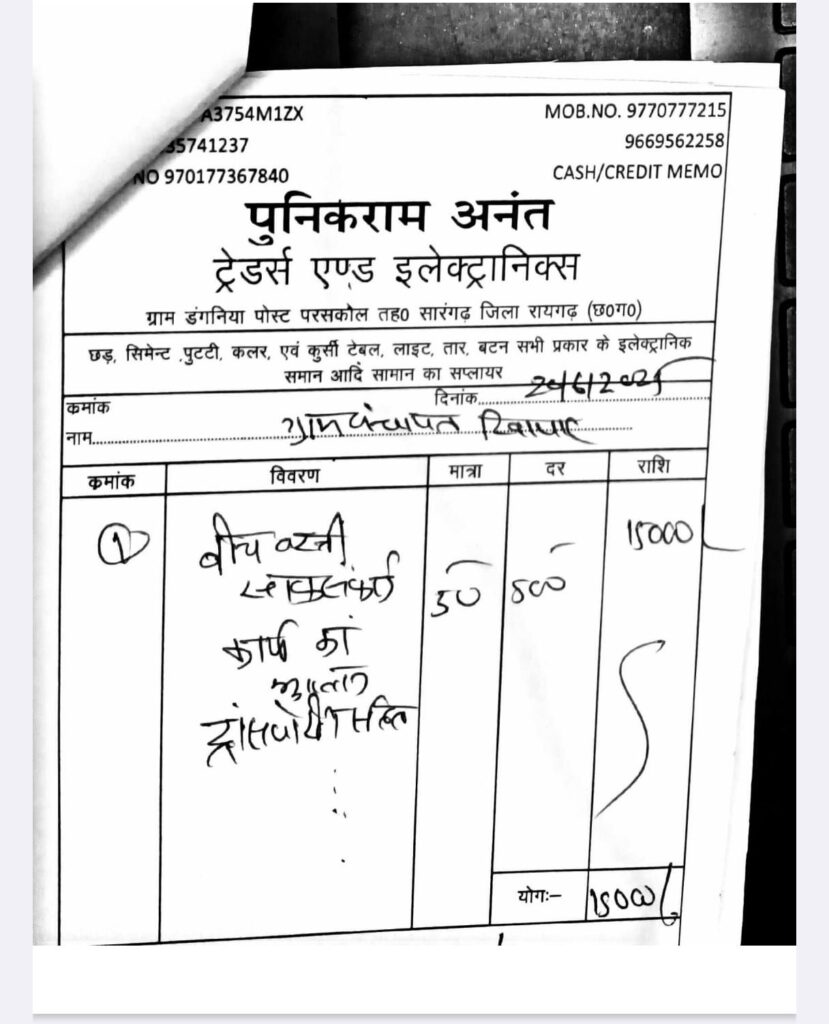 A3754M1ZX
35741237
NO 970177367840
MOB.NO. 9770777215
9669562258
CASH/CREDIT MEMO
पुनिकराम अनंत
ट्रेडर्स एण्ड इलेक्ट्रानिक्स
ग्राम डंगनिया पोस्ट परसकोल तह0 सारंगढ़ जिला रायगढ़ (छ0ग0)
छड़, सिमेन्ट ,पुटटी, कलर, एवं कुर्सी टेबल, लाइट, तार, बटन सभी प्रकार के इलेक्ट्रानिक
समान आदि सामान का सप्लायर
कमांक
दिनांक
नाम ग्रामपंचायत
कमांक विवरण मात्रा दर राशि
1 बीच बस्ती 15000/
कार्य का
ट्रांसपोर्टिंग सहित
योगः- 15000/